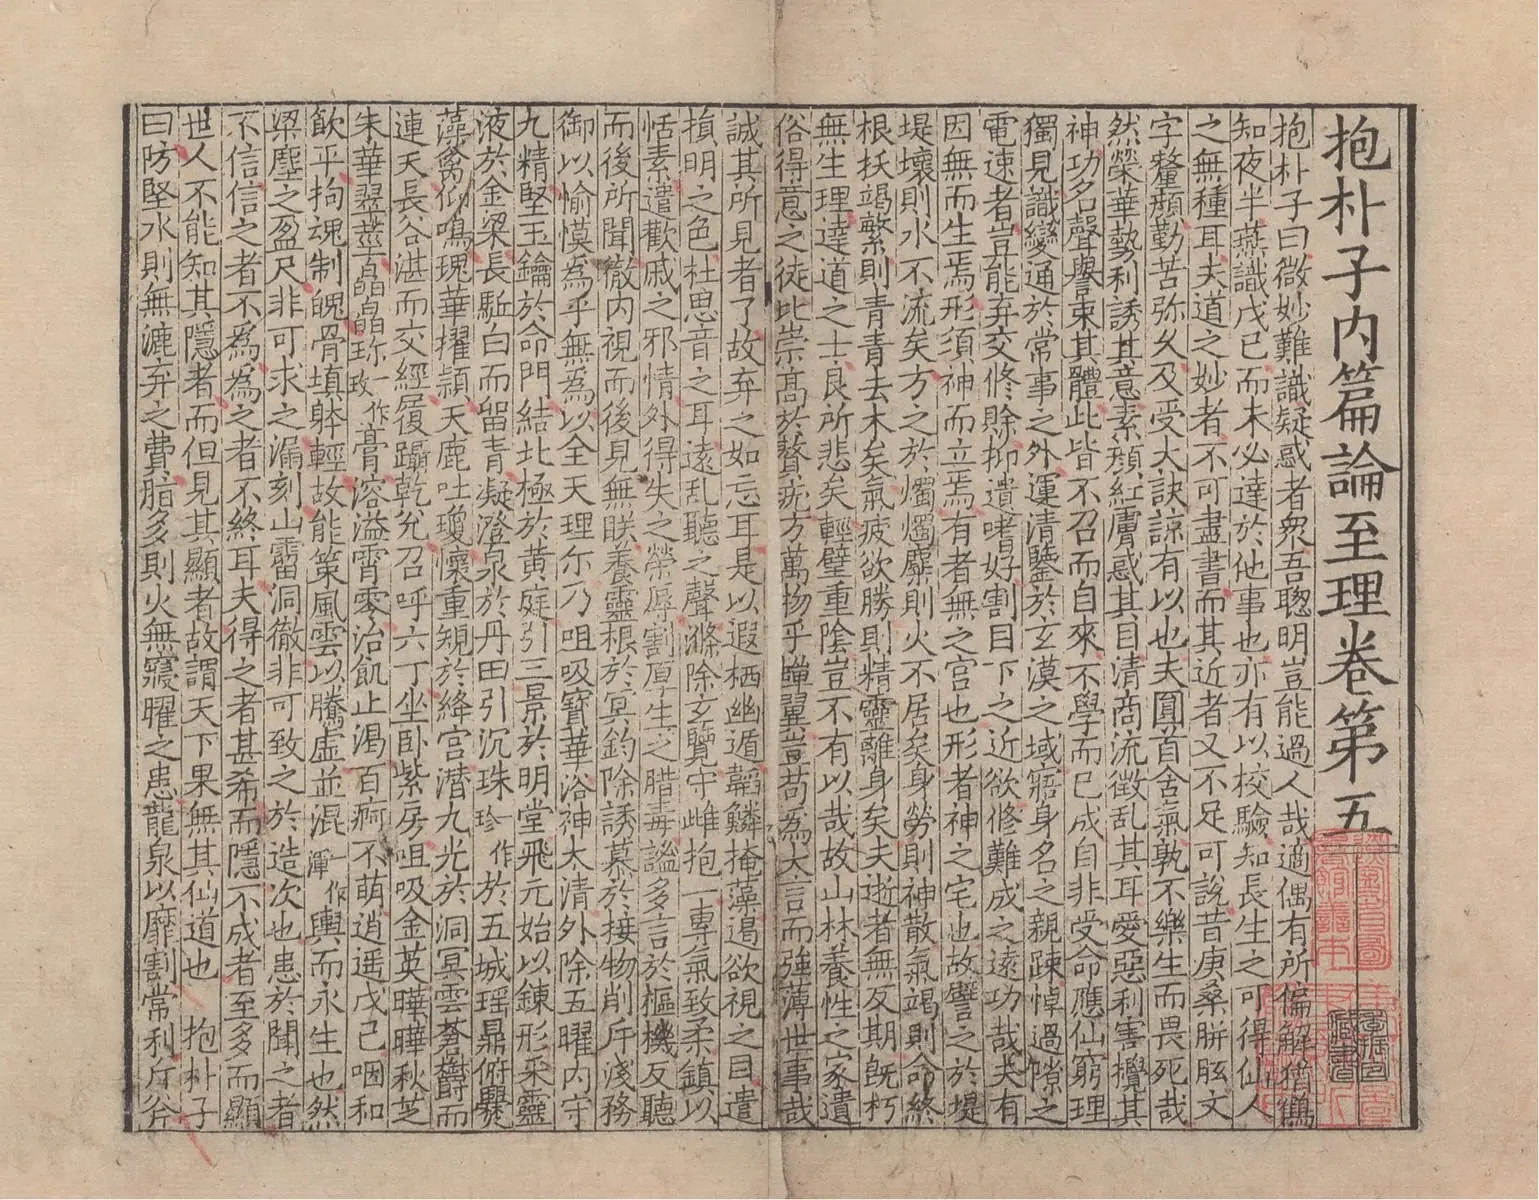 抱朴子内篇論至理卷第五
抱朴子曰微妙難識疑惑者衆吾聦明豈能過人哉適偶有所偏解猶鶴
知夜半燕識戊巳而未必達於他事也亦有以校驗知長生之可得仙人
之無種耳夫道之妙者不可盡書而其近者又不足可説昔庚桑胼胘文
字釐頽勤苦弥久及受大訣諒有以也夫圓首含氣孰不樂生而畏死哉
然榮華勢利誘其意素顔紅膚惑其目清商流徵乱其耳愛惡利害攪其
神功名聲譽束其體此皆不召而自來不學而已成自非受命應仙窮理
獨見識變通於常事之外運清鑒於玄漠之域寤身名之親踈悼過隙之
電速者豈能弃交修賒抑遺嗜好割目下之近欲修難成之遠功哉夫有
因無而生焉形須神而立焉有者無之官也形者神之宅也故譬之於堤
堤壞則水不流矣方之於燭燭靡則火不居矣身勞則神散氣竭則命終
根抚竭繁則青青去木矣氣疲欲勝則精靈離身矣夫逝者無反期旣朽
無生理達道之士良所悲矣輕璧重隂豈不有以哉故山林養性之家遺
俗得意之徒比崇髙於贅疣方萬物乎蟬翼豈苟爲大言而強薄世事哉
誠其所見者了故弃之如忘耳是以遐栖幽遁韜鱗掩藻遏欲視之目遣
損明之色杜思音之耳遠乱聽之聲滌除玄覽守雌抱一專氣致柔鎮以
恬素遣歡戚之邪情外得失之榮辱割厚生之腊毒謐多言於樞機反聽
而後所聞徹内視而後見無朕養靈根於冥鈞除誘慕於接物削斥淺務
御以愉慔爲乎無爲以全天理尓乃咀吸寶華浴神太清外除五曜内守
九精堅玉鑰於命門結北極於黄庭引三景於明堂飛元始以鍊形采靈
液於金梁長駈白而留青凝澄泉於丹田引沉珠一作珍於五城瑶鼎俯爨
藻禽仰鳴瑰華擢頴天鹿吐瓊懷重規於絳宫潜九光於洞冥雲蒼欝而
連天長谷湛而交經履躡乾兊召呼六丁坐卧紫房咀吸金英曄曄秋芝
朱華翠莖皛皛珎一作玫膏溶溢霄零治飢止渴百痾不萌逍遥戊己咽和
飲平拘魂制魄骨填躰輕故能策風雲以騰虚並混一作渾輿而永生也然
梁塵之盈尺非可求之漏刻山霤洞徹非可致之於造次也患於聞之者
不信信之者不爲爲之者不終耳夫得之者甚希而隱不成者至多而顯
世人不能知其隱者而但見其顯者故謂天下果無其仙道也　抱朴子
曰防堅水則無漉弃之費脂多則火無寢曜之患龍泉以靡割常利斤斧